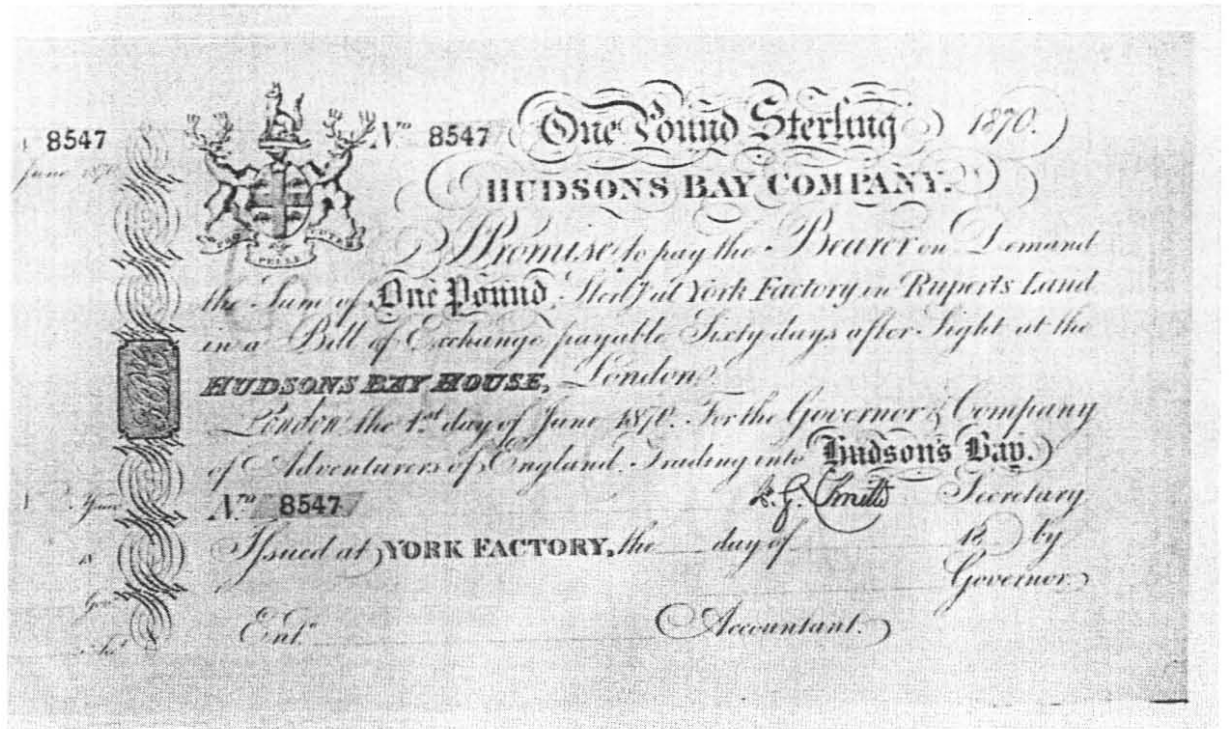 8547
June 1870
Nro 8547 One Pound Sterling 1870.
HUDSONS BAY COMPANY.
PRO PELLE CUTEM
I Promise to pay the Bearer on Demand
the Sum of One Pound Sterlg at York Factory in Ruperts Land
in a Bill of Exchange payable Sixty days after Sight at the
HUDSONS BAY HOUSE, London.
HBC
London the 1st day of June 1870. For the Governor & Company
of Adventurers of England. Trading into Hudson's Bay.
Nro 8547
Smith Secretary
Issued at YORK FACTORY, the day of 18 by
Governor.
Entd Accountant.